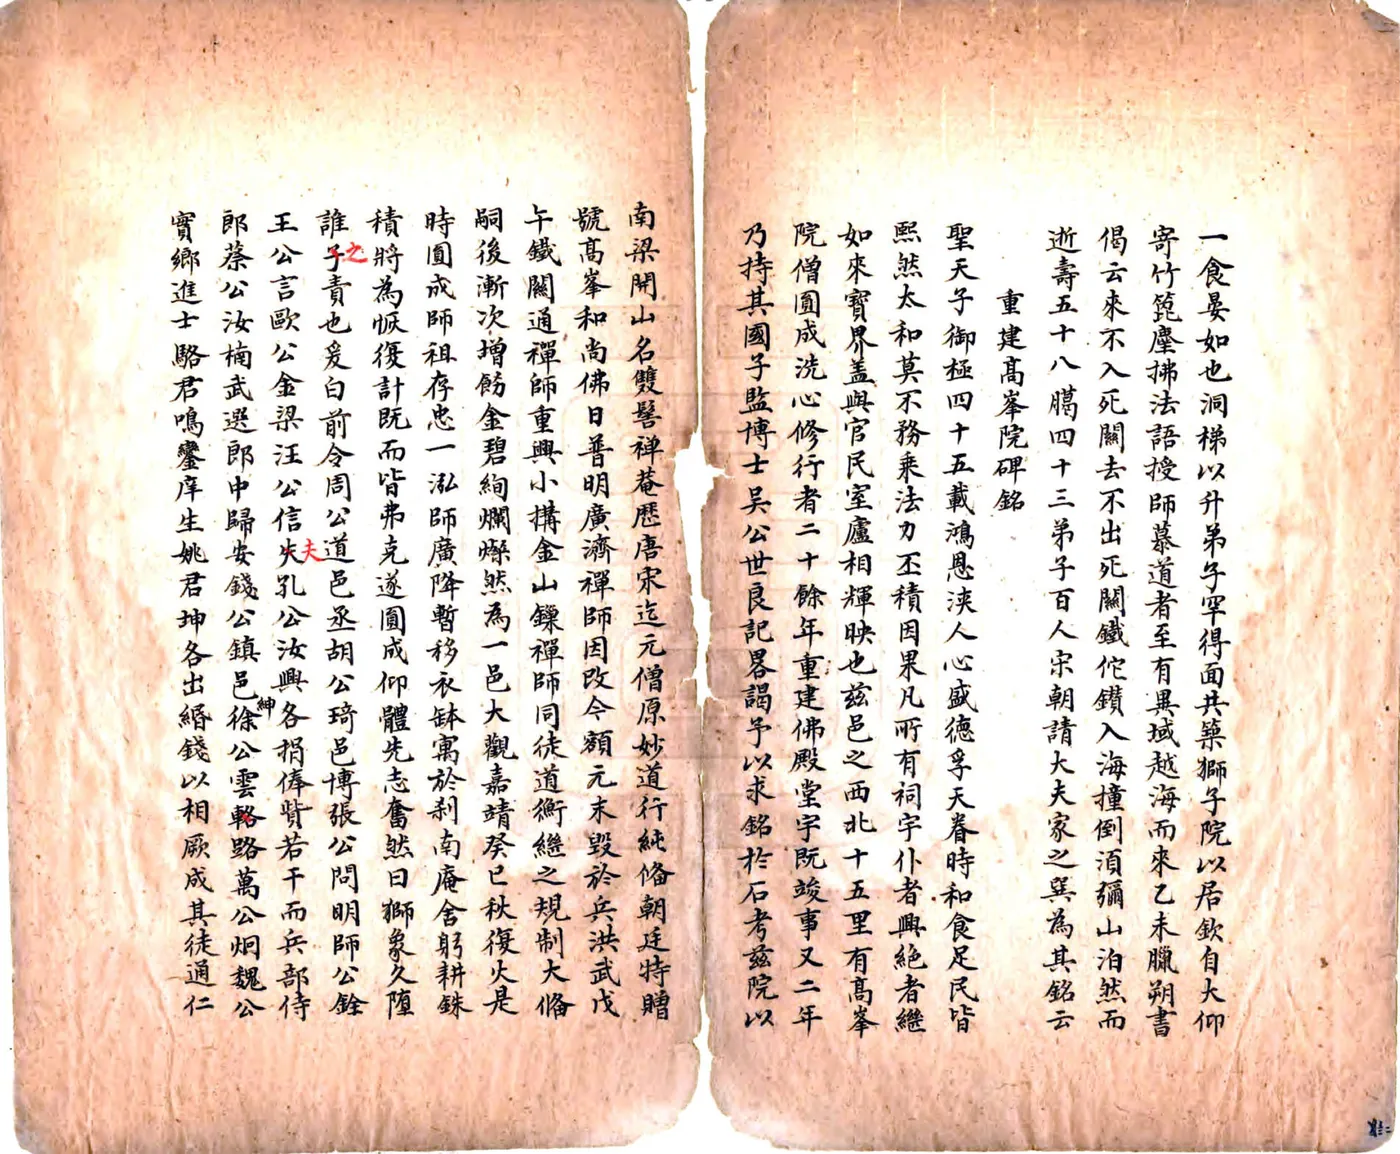 一食晏如也洞梯以升弟子罕得面共築獅子院以居欽自大仰
寄竹篦麈拂法語授師慕道者至有異域越海而來乙未臘朔書
偈云來不入死關去不出死關鐵佗鑽入海撞倒須彌山泊然而
逝壽五十八臈四十三弟子百人宋朝請大夫家之巽為其銘云
重建髙峯院碑銘
聖天子御極四十五載鴻恩浹人心盛德孚天眷時和食足民皆
熙然太和莫不務乗法力丕積因果凡所有祠宇仆者興絶者繼
如來寳界蓋與官民室廬相輝映也兹邑之西北十五里有髙峯
院僧圓成洗心修行者二十餘年重建佛殿堂宇既竣事又二年
乃持其國子監博士吴公世良記畧謁予以求銘於石考兹院以
南梁開山名雙髻禅菴歴唐宋迄元僧原妙道行純俻朝廷特贈
號髙峯和尚佛日普明廣濟禪師因改今額元末毀於兵洪武戊
午鐵關通禪師重興小搆金山鏁禪師同徒道衡繼之規制大俻
嗣後漸次增餙金碧絢爛燦然為一邑大觀嘉靖癸巳秋復火是
時圓成師祖存忠一泓師廣降暫移衣缽寓於刹南庵舍躬耕銖
積將為恢復計既而皆弗克遂圓成仰體先志奮然曰獅象久堕
誰子之責也爰白前令周公道邑丞胡公琦邑博張公問明師公銓
王公言歐公金梁汪公信失夫孔公汝興各捐俸貲若干而兵部侍
郎蔡公汝楠武選郎中歸安錢公鎮邑紳徐公雲輅路萬公炯魏公
實鄉進士駱君鳴鑾庠生姚君坤各出緡錢以相厥成其徒通仁